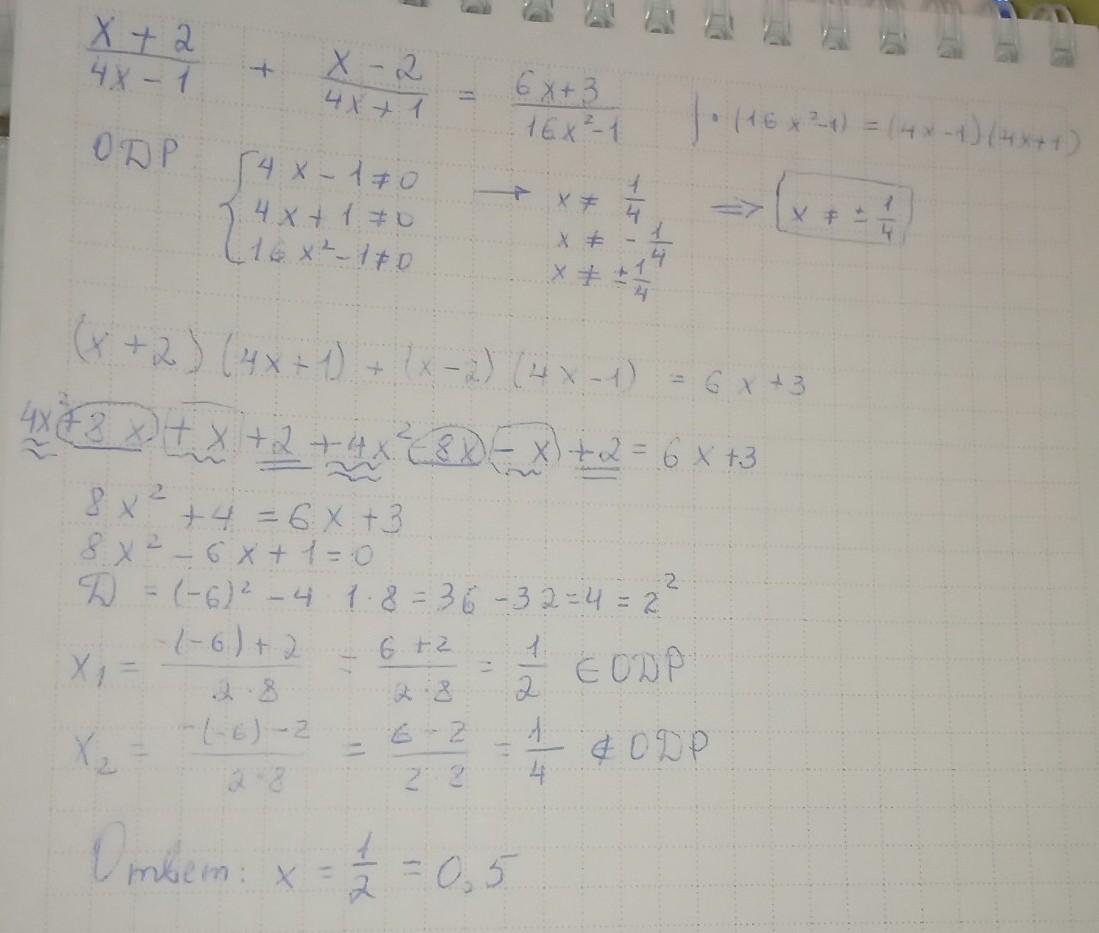 (x + 2)/(4x - 1) + (x - 2)/(4x + 1) = (6x + 3)/(16x² - 1) | · (16x² - 1) = (4x - 1)(4x + 1)
ODP
{ 4x - 1 ≠ 0 → x ≠ 1/4 ⇒ x ≠ ± 1/4
4x + 1 ≠ 0 x ≠ - 1/4
16x² - 1 ≠ 0 x ≠ ± 1/4
(x + 2)(4x + 1) + (x - 2)(4x - 1) = 6x + 3
4x² + 8x + x + 2 + 4x² - 8x - x + 2 = 6x + 3
8x² + 4 = 6x + 3
8x² - 6x + 1 = 0
D = (-6)² - 4 · 1 · 8 = 36 - 32 = 4 = 2²
x₁ = (-(-6) + 2)/(2 · 8) = (6 + 2)/(2 · 8) = 1/2 ∈ ODP
x₂ = (-(-6) - 2)/(2 · 8) = (6 - 2)/(2 · 8) = 1/4 ∉ ODP
Ответ: x = 1/2 = 0,5